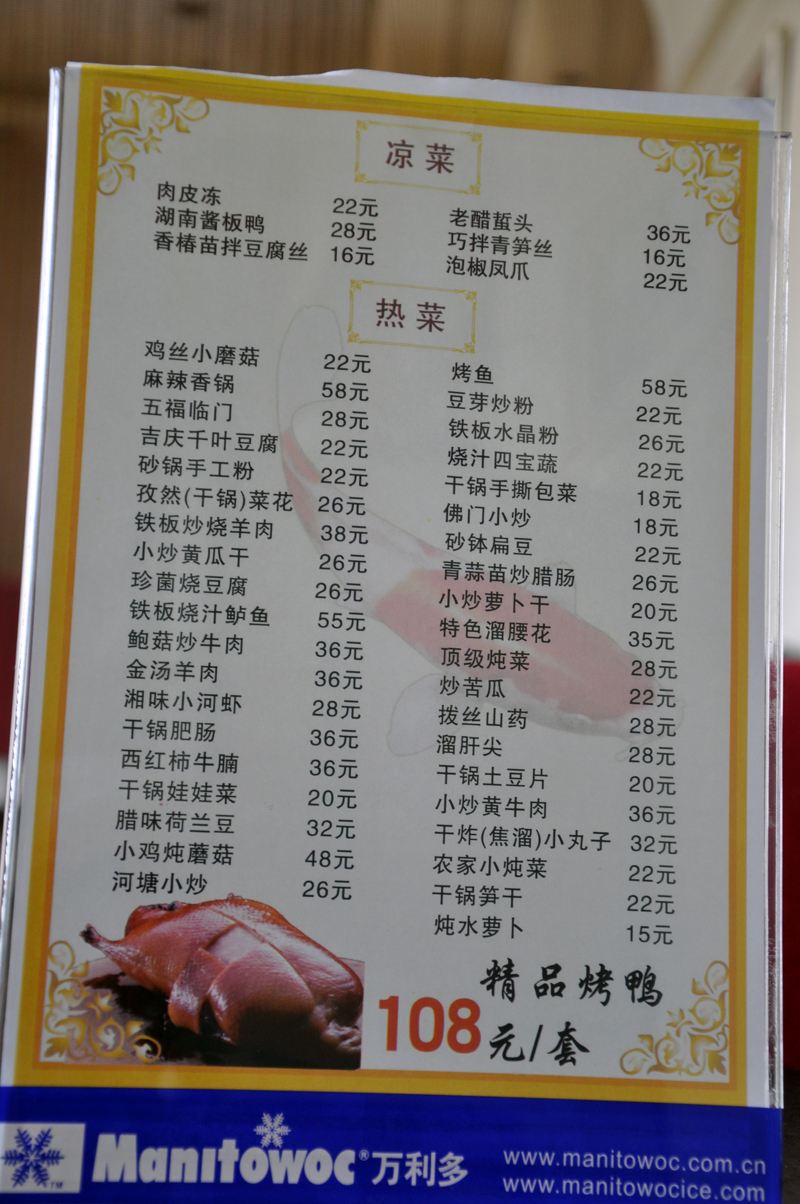 凉菜
肉皮冻 22元
湖南酱板鸭 28元
香椿苗拌豆腐丝 16元
老醋蜇头 36元
巧拌青笋丝 16元
泡椒凤爪 22元
热菜
鸡丝小磨菇 22元
麻辣香锅 58元
五福临门 28元
吉庆千叶豆腐 22元
砂锅手工粉 22元
孜然(干锅)菜花 26元
铁板炒烧羊肉 38元
小炒黄瓜干 26元
珍菌烧豆腐 26元
铁板烧汁鲈鱼 55元
鲍菇炒牛肉 36元
金汤羊肉 36元
湘味小河虾 28元
干锅肥肠 36元
西红柿牛腩 36元
干锅娃娃菜 20元
腊味荷兰豆 32元
小鸡炖蘑菇 48元
河塘小炒 26元
烤鱼 58元
豆芽炒粉 22元
铁板水晶粉 26元
烧汁四宝蔬 22元
干锅手撕包菜 18元
佛门小炒 18元
砂钵扁豆 22元
青蒜苗炒腊肠 26元
小炒萝卜干 20元
特色溜腰花 35元
顶级炖菜 28元
炒苦瓜 22元
拨丝山药 28元
溜肝尖 28元
干锅土豆片 20元
小炒黄牛肉 36元
干炸(焦溜)小丸子 32元
农家小炖菜 22元
干锅笋干 22元
炖水萝卜 15元
精品烤鸭
108元/套
Manitowoc®万利多
www.manitowoc.com.cn
www.manitowocice.com